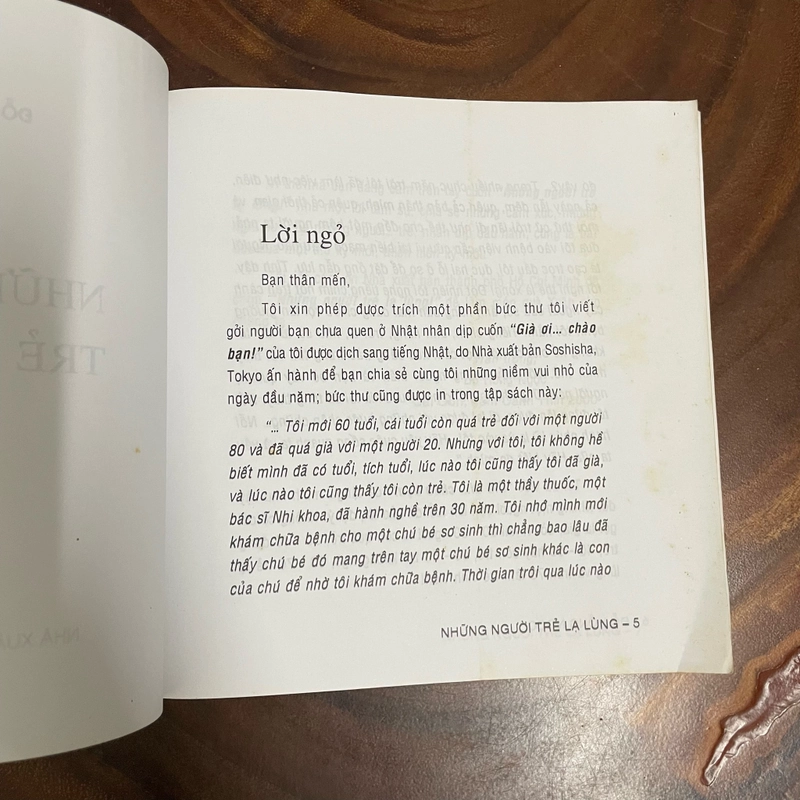 ĐỖ
NHỮN
TRẺ
NHÀ XUẤ
Lời ngỏ
Bạn thân mến,
Tôi xin phép được trích một phần bức thư tôi viết
gởi người bạn chưa quen ở Nhật nhân dịp cuốn “Già ơi... chào
bạn!” của tôi được dịch sang tiếng Nhật, do Nhà xuất bản Soshisha,
Tokyo ấn hành để bạn chia sẻ cùng tôi những niềm vui nhỏ của
ngày đầu năm; bức thư cũng được in trong tập sách này:
“... Tôi mới 60 tuổi, cái tuổi còn quá trẻ đối với một người
80 và đã quá già với một người 20. Nhưng với tôi, tôi không hề
biết mình đã có tuổi, tích tuổi, lúc nào tôi cũng thấy tôi đã già,
và lúc nào tôi cũng thấy tôi còn trẻ. Tôi là một thầy thuốc, một
bác sĩ Nhi khoa, đã hành nghề trên 30 năm. Tôi nhớ mình mới
khám chữa bệnh cho một chú bé sơ sinh thì chẳng bao lâu đã
thấy chú bé đó mang trên tay một chú bé sơ sinh khác là con
của chú để nhờ tôi khám chữa bệnh. Thời gian trôi qua lúc nào
NHỮNG NGƯỜI TRẺ LẠ LÙNG – 5